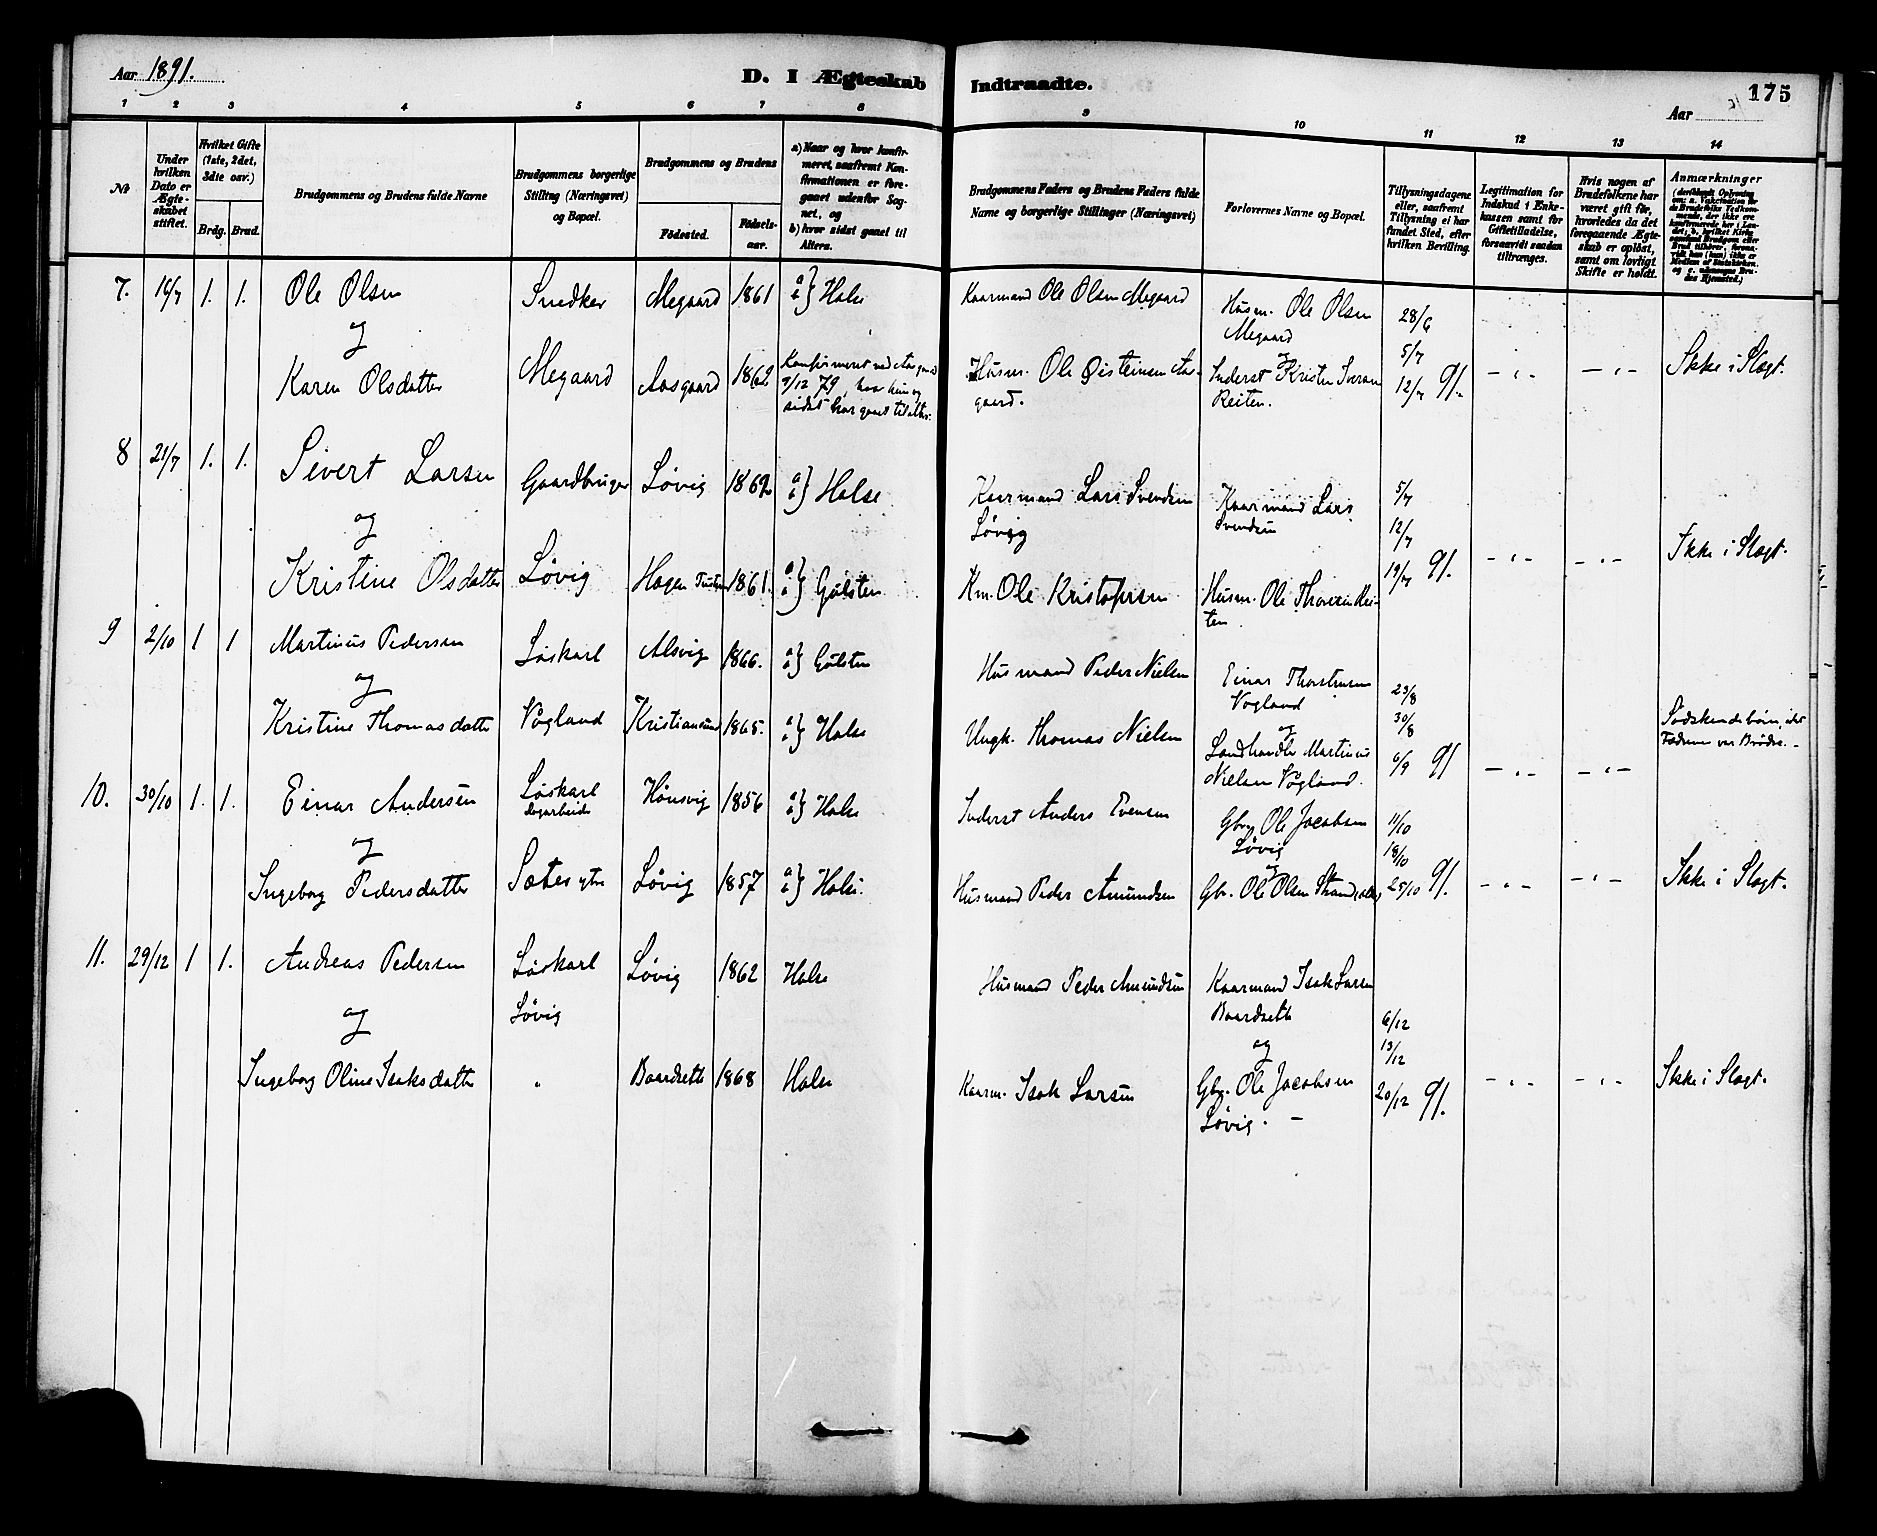 Aar 1891.
D. I Ægteskab Indtraadte.
175
Aar
1 2 3 4 5 6 7 8 9 10 11 12 13 14
No
Under hvilken Dato er Ægteskabet stiftet.
Hvilket Gifte (1ste, 2det, 3die osv.)
Brdg. Brud.
Brudgommens og Brudens fulde Navne
Brudgommens borgerlige Stilling (Næringsvei) og Bopæl.
Brudgommens og Brudens
Födested. Födselsaar.
a) Naar og hvor konfirmeret, saafremt Konfirmationen er foregaaet udenfor Sognet, og
b) hvor sidst gaaet til Alters.
Brudgommens Faders og Brudens Faders fulde Navne og borgerlige Stillinger (Næringsvei)
Forlovernes Navne og Bopæl.
Tillysningsdagene eller, saafremt Tillysning ei har fundet Sted, efter hvilken Bevilling.
Legitimation for Indskud i Enkekassen samt for Giftetilladelse, forsaavidt saadan tiltrænges.
Hvis nogen af Brudefolkene har været gift för, hvorledes da det foregaaende Ægteskab er oplöst, samt om lovligt Skifte er holdt.
Anmærkninger
7. 14/7 1. 1. Ole Olsen Snedker Megaard 1861 a b } Halse Kaarmand Ole Olsen Megaard Husm. Ole Olsen Megaard 28/6
og 5/7
Karen Olsdatter Megaard Aasgaard 1862 Konfirmeret ved Aasgaard /12 79, hvor hun og sidst har gaaet til alters. Husm. Ole Øisteinsen Aasgaard. Inderst Kristen Iversen Reiten. 12/7 - " - - " - Ikke i Slægt.
8 21/7 1. 1. Sivert Larsen Gaardbruger Løvig 1862 a b } Halse Kaarmand Lars Svendsen Løvig Kaarmand Lars Svendsen 5/7
og 12/7
Kristine Olsdatter Løvig Hagen 1861. a b } Gulsten Km. Ole Kristofersen Husm. Ole Thoresen Reiten 19/7 - " - - " - Ikke i Slægt.
9 2/10 1 1 Martinus Pedersen Løskarl Alsvig 1866. a b } Gulsten Husmand Peder Nielsen Einar Thorstensen Vogland 23/8
og og 30/8
Kristine Thomasdatter Vogland Kristiansund 1865. a b } Halse Ungk. Thomas Nielsen Landhandler Martinus Nielsen Vogland. 6/9 - " - - " - Sødskendebørn, idet Fædrene var Brødre. -
10. 30/10 1. 1. Einar Andersen Løskarl Dagarbeider Hønsvig 1856 a b } Halse Inderst Anders Evensen Gbr. Ole Jacobsen Løvig 11/10
og og 18/10
Ingeborg Pedersdatter Sæter ytre Løvig 1857 a b } Halse. Husmand Peder Amundsen Gbr. Ole Olsen 25/10 - " - - " - Ikke i Slægt.
11. 29/12 1 1. Andreas Pedersen Løskarl Løvig 1862 Halse Husmand Peder Amundsen Kaarmand Isak Larsen Baardsetb 6/12
og Løvig og 13/12
Ingeborg Oline Isaksdatter " Baardseth 1868 Halse Kaarm. Isak Larsen Gbr. Ole Jacobsen Løvig. - 20/12 - " - - " - Ikke i Slægt.